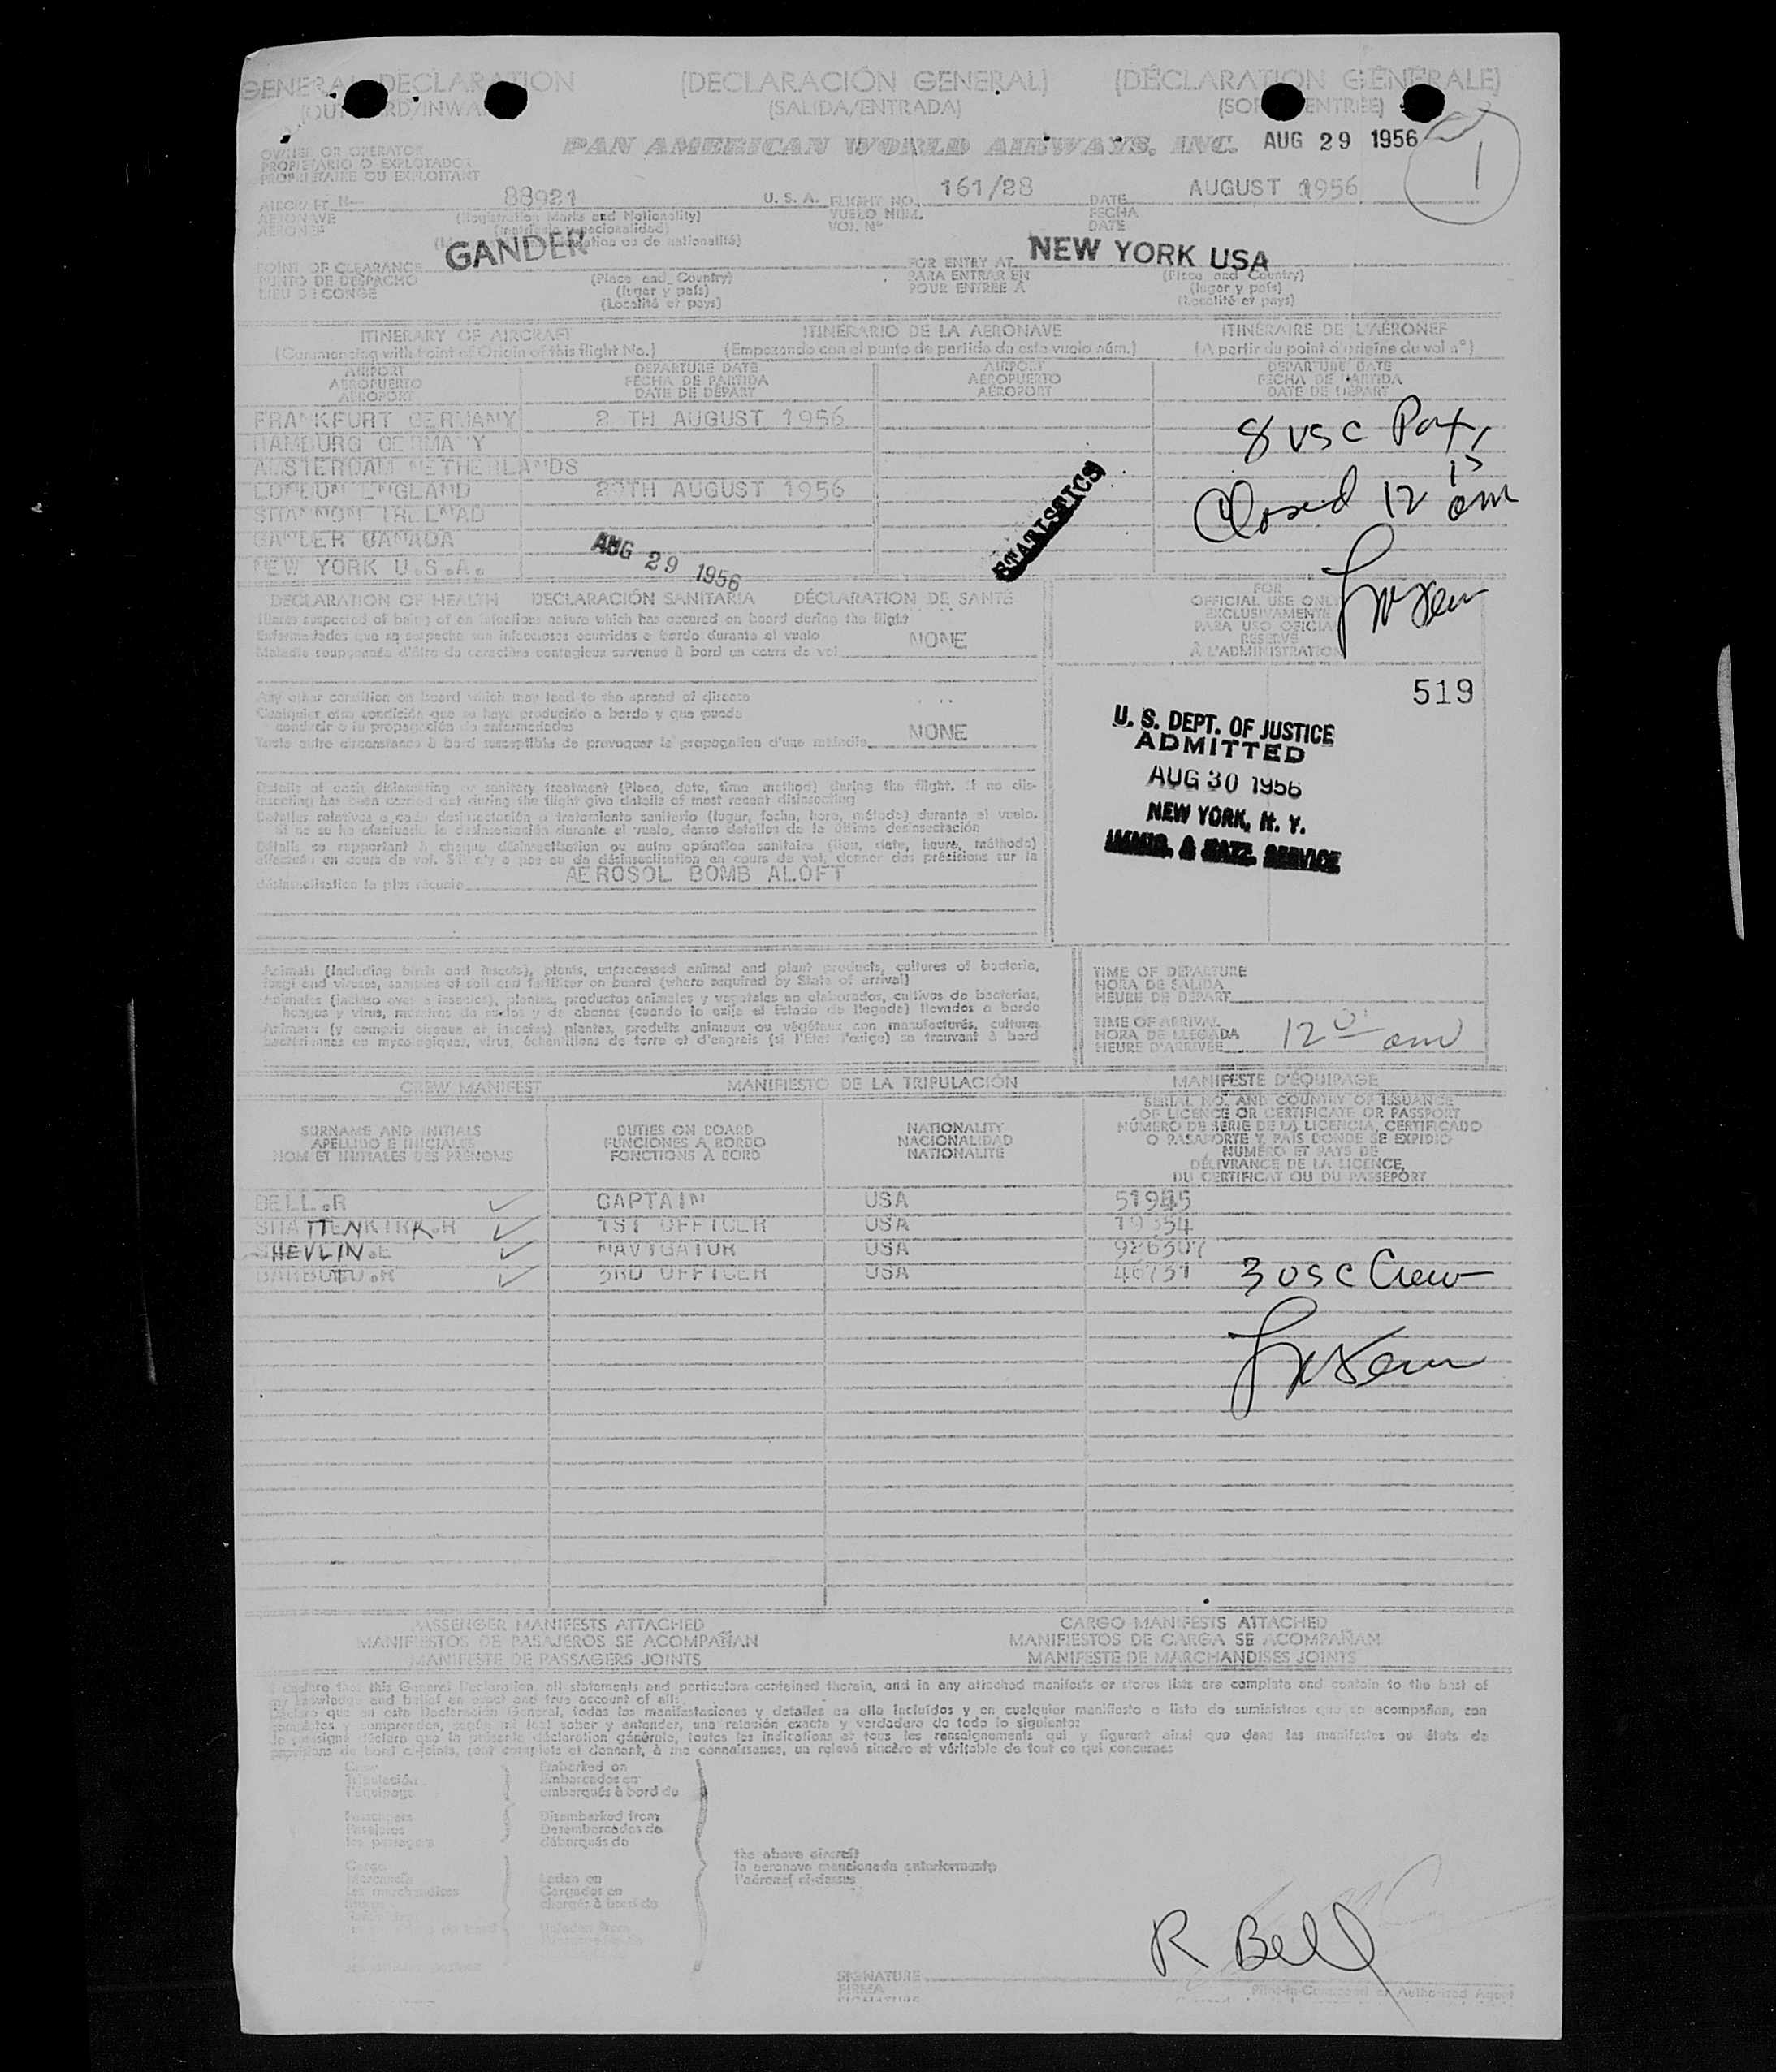 GENERAL DECLARATION (DECLARACIÓN GENERAL) (DÉCLARATION GÉNÉRALE)
(SALIDA/ENTRADA)
OWNER OR OPERATOR
PROPIETARIO O EXPLOTADOR
PROPRIETAIRE OU EXPLOITANT
PAN AMERICAN WORLD AIRWAYS, INC. AUG 29 1956
1
AIRCRAFT N- 88921 U. S. A. FLIGHT NO. 161/28 DATE AUGUST 1956
AERONAVE (Registration Marks and Nationality) VUELO NUM. FECHA
AERONEF VOL N° DATE
POINT OF CLEARANCE GANDER FOR ENTRY AT NEW YORK USA
PUNTO DE DESPACHO (Place and Country) PARA ENTRAR EN (Place and Country)
LIEU DE CONGE (lugar y país) POUR ENTREE A (lugar y país)
(Localité et pays) (Localité et pays)
ITINERARY OF AIRCRAFT ITINERARIO DE LA AERONAVE ITINÉRAIRE DE L'AÉRONEF
(Commencing with Point of Origin of this flight No.) (Empezando con el punto de partida de este vuelo núm.) (A partir du point d'origine du vol n°)
AIRPORT DEPARTURE DATE AIRPORT DEPARTURE DATE
AEROPUERTO FECHA DE PARTIDA AEROPUERTO FECHA DE PARTIDA
AÉROPORT DATE DE DÉPART AÉROPORT DATE DE DÉPART
FRANKFURT GERMANY 2 TH AUGUST 1956
HAMBURG GERMANY
AMSTERDAM NETHERLANDS
LONDON ENGLAND AUGUST 1956
SHANNON IRELNAD
GANDER CANADA
NEW YORK U.S.A.
AUG 29 1956
STATISTICS
8 USC Pax,
Closed 12 15 am
DECLARATION OF HEALTH DECLARACIÓN SANITARIA DÉCLARATION DE SANTÉ
Illness suspected of being of an infectious nature which has occured on board during the flight
Enfermedades que se sospecha son infecciosas ocurridas a bordo durante el vuelo
Maladie soupçonnée d'être de caractère contagieux survenue à bord en cours de vol NONE
FOR
OFFICIAL USE ONLY
EXCLUSIVAMENTE
PARA USO OFICIAL
RESERVÉ
A L'ADMINISTRATION
Any other condition on board which may lead to the spread of disease
Cualquier otra condición que se haya producido a bordo y que pueda
conducir a la propagación de enfermedades
Toute autre circonstance à bord susceptible de provoquer la propagation d'une maladie NONE
519
U. S. DEPT. OF JUSTICE
ADMITTED
AUG 30 1956
NEW YORK, N. Y.
IMMIG. & NATZ. SERVICE
Details of each disinsecting or sanitary treatment (Place, date, time method) during the flight. If no dis-
insecting has been carried out during the flight give details of most recent disinsecting
Detalles relativos a cada desinsectación o tratamiento sanitario (lugar, fecha, hora, método) durante el vuelo.
Si no se ha efectuado la desinsectación durante el vuelo, dense detalles de la última desinsectación
Détails se rapportant à chaque désinsectisation ou autre opération sanitaire (lieu, date, heure, méthode)
effectuée en cours de vol. S'il n'y a pas eu de désinsectisation en cours de vol, donner des précisions sur la
désinsectisation la plus récente AEROSOL BOMB ALOFT
Animals (Including birds and insects), plants, unprocessed animal and plant products, cultures of bacteria,
fungi and viruses, samples of soil and fertilizer on board (where required by State of arrival)
Animales (incluso aves e insectos), plantas, productos animales y vegetales no elaborados, cultivos de bacterias,
hongos y virus, muestras de suelos y de abonos (cuando lo exija el Estado de llegada) llevados a bordo
Animaux (y compris oiseaux et insectes) plantes, produits animaux ou végétaux non manufacturés, cultures
bactériennes ou mycologiques, virus, échantillons de terre et d'engrais (si l'Etat l'exige) se trouvant à bord
TIME OF DEPARTURE
HORA DE SALIDA
HEURE DE DÉPART
TIME OF ARRIVAL
HORA DE LLEGADA
HEURE D'ARRIVÉE 12 01 am
CREW MANIFEST MANIFIESTO DE LA TRIPULACIÓN MANIFESTE D'ÉQUIPAGE
SURNAME AND INITIALS
APELLIDO E INICIALES
NOM ET INITIALES DES PRÉNOMS
DUTIES ON BOARD
FUNCIONES A BORDO
FONCTIONS À BORD
NATIONALITY
NACIONALIDAD
NATIONALITÉ
SERIAL NO. AND COUNTRY OF ISSUANCE
OF LICENCE OR CERTIFICATE OR PASSPORT
NÚMERO DE SERIE DE LA LICENCIA, CERTIFICADO
O PASAPORTE Y PAIS DONDE SE EXPIDIO
NUMÉRO ET PAYS DE
DÉLIVRANCE DE LA LICENCE,
DU CERTIFICAT OU DU PASSEPORT
BELL.R CAPTAIN USA 51945
SHATTENKIRK.H 1ST OFFICER USA
SHEVLIN.E NAVIGATOR USA 926307
3RD OFFICER USA 46731
3 USC Crew
PASSENGER MANIFESTS ATTACHED CARGO MANIFESTS ATTACHED
MANIFIESTOS DE PASAJEROS SE ACOMPAÑAN MANIFIESTOS DE CARGA SE ACOMPAÑAN
MANIFESTE DE PASSAGERS JOINTS MANIFESTE DE MARCHANDISES JOINTS
I declare that this General Declaration, all statements and particulars contained therein, and in any attached manifests or stores lists are complete and contain to the best of
my knowledge and belief an exact and true account of all:
Declaro que en esta Declaración General, todas las manifestaciones y detalles en ella incluidos y en cualquier manifiesto o lista de suministros que se acompañan, son
completos y comprenden, según mi leal saber y entender, una relación exacta y verdadera de todo lo siguiente:
Je soussigné déclare que la présente déclaration générale, toutes les indications et tous les renseignements qui y figurent ainsi que dans les manifestes ou états de
provisions de bord ci-joints, sont complets et donnent, à ma connaissance, un relevé sincère et véritable de tout ce qui concerne:
Crew Embarked on
Tripulación Embarcados en
l'équipage embarqués à bord de
Passengers Disembarked from
Pasajeros Desembarcados de
les passagers débarqués de
the above aircraft
la aeronave mencionada anteriormente
l'aéronef ci-dessus
Cargo
Mercancía Laden on
Les marchandises Cargados en
chargés à bord de
R Bell
SIGNATURE
FIRMA
SIGNATURE
Pilot-in-Command or Authorized Agent